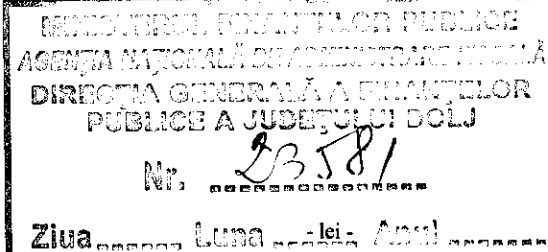 MINISTERUL FINANTELOR PUBLICE
AGENŢIA NAŢIONALĂ DE ADMINISTRARE FISCALĂ
DIRECŢIA GENERALĂ A FINANTELOR
PUBLICE A JUDEŢULUI DOLJ
Nr. 23581
Ziua Luna - lei - Anul